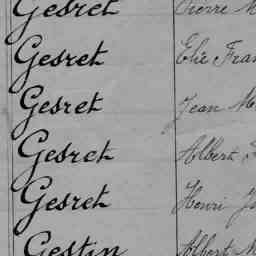 Gesret Pierre M
Gesret Elie Fran
Gesret Jean M
Gesret Albert
Gesret Henri J
Gestin Albert M